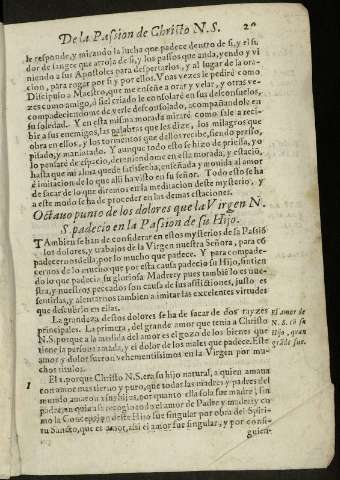 De la Passion de Christo N.S. 20
le responde, y mirando la lucha que padece dentro de si, y el su
dor de sangre que arroja de si, y los passos que anda, yendo y vi
niendo a sus Apostoles para despertarlos, y al lugar de la ora-
cion, para rogar por si y por ellos. Vnas vezes le pedirè como
Discipulo a Maestro, que me enseñe a orar y velar, y otras ve-
zes como amigo, ò fiel criado le consolarè en sus desconsuelos,
compadeciendome de verle desconsolado, acompañandole en
su soledad. Y en esta misma morada mirarè como sale a reci-
bir a sus enemigos, las palabras que les dize, los milagros que
obra en ellos, y los tormentos que dellos recibe, siendo preso,
pisado, y maniatado. Y aunque todo esto se hizo de priessa, yo
lo pensarè de espacio, deteniendome en esta morada, y estaciõ,
hasta que mi alma quede satisfecha, enseñada y mouida al amor
è imitacion de lo que alli ha visto en su señor. Todo esto se ha
de sacar de lo que diremos en la meditacion deste mysterio, y
a este modo se ha de proceder en las demas estaciones.
Octauo punto de los dolores que la Virgen N.
S. padeciò en la Passion de su Hijo.
TAmbien se han de considerar en estos mysterios de la Passiõ
los dolores, y trabajos de la Virgen nuestra Señora, para cõ
padecernos della, por lo mucho que padece. Y para compade-
cernos de lo mucho que por esta causa padeciò su Hijo, sintien
do lo que padecia su gloriosa Madre: y pues tambiè lo es nue-
stra, y nuestros peccados son causa de sus aflicciones, justo es
sentirlas, y alentarnos tambien a imitar las excelentes virtudes
que descubriò en ellas.
La grandeza destos dolores se ha de sacar de dos rayzes
principales. La primera, del grande amor que tenia a Christo
N.S. porque a la medida del amor es el gozo de los bienes que
tiene la persona amada, y el dolor de los males que padece. Este
amor y dolor fueron vehementissimos en la Virgen por mu-
chos titulos.
El amor de
N. S. cõ su
Hijo, quan
grãde fue.
1
El 1. porque Christo N.S. era su hijo natural, a quien amaua
con amor mas tierno y puro, que todas las madres y padres del
mundo amaron a sus hijos, por quanto ella sola fue madre sin
padre, en quien se recogio todo el amor de Padre y madre: y co
mo la Concepcion deste Hijo fue singular por obra del Spiri-
tu Sancto, que es amor, assi el amor fue singular, y por consi-
guien-